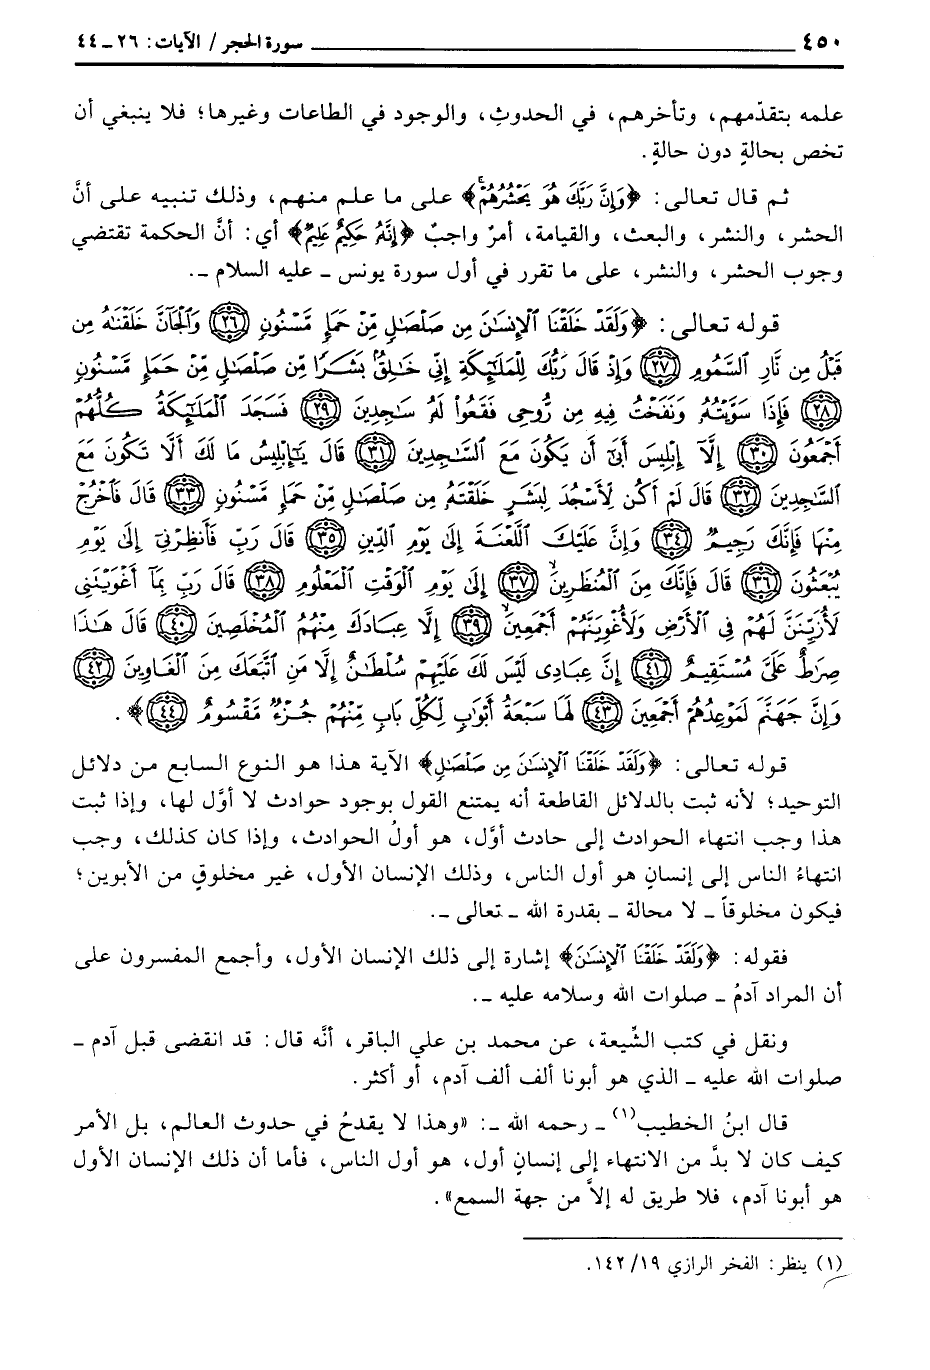 ٤٥٠ سورة الحجر / الآيات: ٢٦ ـ ٤٤
علمه بتقدّمهم، وتأخرهم، في الحدوثِ، والوجود في الطاعات وغيرها؛ فلا ينبغي أن
تخص بحالةٍ دون حالةٍ.
ثم قال تعالى: ﴿وَإِنَّ رَبَّكَ هُوَ يَحْشُرُهُمْ﴾ على ما علم منهم، وذلك تنبيه على أنَّ
الحشر، والنشر، والبعث، والقيامة، أمرٌ واجبٌ ﴿إِنَّهُ حَكِيمٌ عَلِيمٌ﴾ أي: أنَّ الحكمة تقتضي
وجوب الحشر، والنشر، على ما تقرر في أول سورة يونس ـ عليه السلام ـ.
قوله تعالى: ﴿وَلَقَدْ خَلَقْنَا ٱلْإِنسَٰنَ مِن صَلْصَٰلٍ مِّنْ حَمَإٍ مَّسْنُونٍ ﴿٢٦﴾ وَٱلْجَآنَّ خَلَقْنَٰهُ مِن
قَبْلُ مِن نَّارِ ٱلسَّمُومِ ﴿٢٧﴾ وَإِذْ قَالَ رَبُّكَ لِلْمَلَٰٓئِكَةِ إِنِّي خَٰلِقٌۢ بَشَرًا مِّن صَلْصَٰلٍ مِّنْ حَمَإٍ مَّسْنُونٍ
﴿٢٨﴾ فَإِذَا سَوَّيْتُهُۥ وَنَفَخْتُ فِيهِ مِن رُّوحِى فَقَعُوا۟ لَهُۥ سَٰجِدِينَ ﴿٢٩﴾ فَسَجَدَ ٱلْمَلَٰٓئِكَةُ كُلُّهُمْ
أَجْمَعُونَ ﴿٣٠﴾ إِلَّآ إِبْلِيسَ أَبَىٰٓ أَن يَكُونَ مَعَ ٱلسَّٰجِدِينَ ﴿٣١﴾ قَالَ يَٰٓإِبْلِيسُ مَا لَكَ أَلَّا تَكُونَ مَعَ
ٱلسَّٰجِدِينَ ﴿٣٢﴾ قَالَ لَمْ أَكُن لِّأَسْجُدَ لِبَشَرٍ خَلَقْتَهُۥ مِن صَلْصَٰلٍ مِّنْ حَمَإٍ مَّسْنُونٍ ﴿٣٣﴾ قَالَ فَٱخْرُجْ
مِنْهَا فَإِنَّكَ رَجِيمٌ ﴿٣٤﴾ وَإِنَّ عَلَيْكَ ٱللَّعْنَةَ إِلَىٰ يَوْمِ ٱلدِّينِ ﴿٣٥﴾ قَالَ رَبِّ فَأَنظِرْنِىٓ إِلَىٰ يَوْمِ
يُبْعَثُونَ ﴿٣٦﴾ قَالَ فَإِنَّكَ مِنَ ٱلْمُنظَرِينَ ﴿٣٧﴾ إِلَىٰ يَوْمِ ٱلْوَقْتِ ٱلْمَعْلُومِ ﴿٣٨﴾ قَالَ رَبِّ بِمَآ أَغْوَيْتَنِى
لَأُزَيِّنَنَّ لَهُمْ فِى ٱلْأَرْضِ وَلَأُغْوِيَنَّهُمْ أَجْمَعِينَ ﴿٣٩﴾ إِلَّا عِبَادَكَ مِنْهُمُ ٱلْمُخْلَصِينَ ﴿٤٠﴾ قَالَ هَٰذَا
صِرَٰطٌ عَلَىَّ مُسْتَقِيمٌ ﴿٤١﴾ إِنَّ عِبَادِى لَيْسَ لَكَ عَلَيْهِمْ سُلْطَٰنٌ إِلَّا مَنِ ٱتَّبَعَكَ مِنَ ٱلْغَاوِينَ ﴿٤٢﴾
وَإِنَّ جَهَنَّمَ لَمَوْعِدُهُمْ أَجْمَعِينَ ﴿٤٣﴾ لَهَا سَبْعَةُ أَبْوَٰبٍ لِّكُلِّ بَابٍ مِّنْهُمْ جُزْءٌ مَّقْسُومٌ ﴿٤٤﴾﴾.
قوله تعالى: ﴿وَلَقَدْ خَلَقْنَا ٱلْإِنسَٰنَ مِن صَلْصَٰلٍ﴾ الآية هذا هو النوع السابع من دلائل
التوحيد؛ لأنه ثبت بالدلائل القاطعة أنه يمتنع القول بوجود حوادث لا أوَّل لها، وإذا ثبت
هذا وجب انتهاء الحوادث إلى حادث أوَّل، هو أولُ الحوادث، وإذا كان كذلك، وجب
انتهاءُ الناس إلى إنسانٍ هو أول الناس، وذلك الإنسان الأول، غير مخلوقٍ من الأبوين؛
فيكون مخلوقاً ـ لا محالة ـ بقدرة الله ـ تعالى ـ.
فقوله: ﴿وَلَقَدْ خَلَقْنَا ٱلْإِنسَٰنَ﴾ إشارة إلى ذلك الإنسان الأول، وأجمع المفسرون على
أن المراد آدمُ ـ صلوات الله وسلامه عليه ـ.
ونقل في كتب الشِّيعة، عن محمد بن علي الباقر، أنَّه قال: قد انقضى قبل آدم ـ
صلوات الله عليه ـ الذي هو أبونا ألف ألف آدم، أو أكثر.
قال ابنُ الخطيب(١) ـ رحمه الله ـ: «وهذا لا يقدحُ في حدوث العالم، بل الأمر
كيف كان لا بدَّ من الانتهاء إلى إنسانٍ أول، هو أول الناس، فأما أن ذلك الإنسان الأول
هو أبونا آدم، فلا طريق له إلاَّ من جهة السمع».
(١) ينظر: الفخر الرازي ١٩/ ١٤٢.